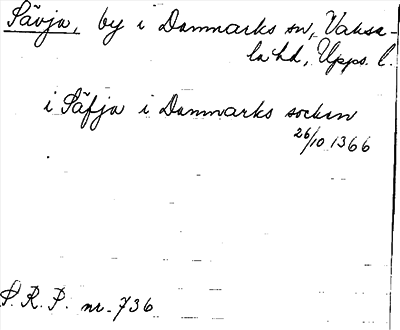 Sävja, by i Danmarks sn, Vaksa-
la hd, Upps. l.
i Säfja i Danmarks socken
26/10 1366
S. R. P. nr. 736